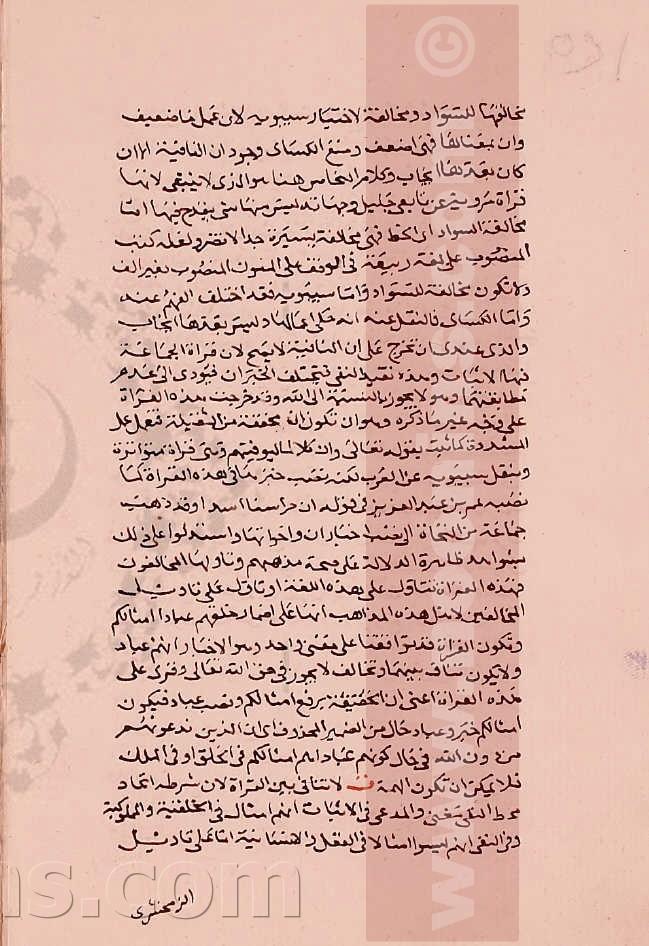 بخالفها للسواد ومخالفة لاختيار سيبويه لان عمل ما ضعيف
وان بمعناها فهى اضعف ومنع الكساى وجود ان النافية الا ان
كان بعدها ايجاب وكلام النحاس هذا هو الذى لا ينبغى لانها
قراة مروية عن تابعى جليل وجهاته ليس منها شى يقدح فيها اما
مخالفة السواد اى الخط فهى مخالفة يسيرة جدا لا تضر ولعله كتب
المنصوب على لغة ربيعة فى الوقف على المنون المنصوب بغير الف
ولا تكون مخالفة للسواد واما سيبويه فقد اختلف الفهم عنه
واما الكساى فالنقل عنه انه حكى اعمالها وليس بعدها ايجاب
والذى عندى ان تخرج على ان النافية لا يصح لان قراة الجماعة
فيها الاثبات وهذه تفيد النفى فيختلف الخبران فيودى الى عدم
تطابقهما وهو لا يجوز بالنسبة الى الله وقد خرجت هذه القراة
على وجه غير ما ذكره وهو ان تكون ان مخففة من الثقيلة فتعمل عمل
المشددة كما ثبت بقوله تعالى وان كلا لما ليوفينهم وهى قراة متواترة
وبنقل سيبويه عن العرب لكنه نصب خبرها فى هذه القراة كما
نصبه عمر بن عبد العزيز فى قوله ان حراسنا اسدا وقد ذهبت
جماعة من النحاة الى نصب اخبار ان واخواتها واستدلوا على ذلك
بشواهد ظاهرة الدلالة على صحة مذهبهم وتاولها المخالفون
فهذه القراة تتاول على هذه اللغة او تاول على تاويل
المخالفين لاهل هذه المذاهب انها على اضمار خلقهم عبادا امثالكم
وتكون القراة قد توافقتا على معنى واحد وهو الاخبار انهم عباد
ولا يكون تناف بينهما وتخالف لا يجوز فى حق الله تعالى وقرى على
هذه القراة اعنى ان الخفيفة برفع امثالكم ونصب عباد فيكون
امثالكم خبر وعباد حال من الضمير المحذوف اى ان الذين تدعونهم
من دون الله فى حال كونهم عبادا هم امثالكم فى الخلق او فى الملك
فلا يمكن ان تكون الهة قلت لا تنافى بين القراة لان شرطه اتحاد
محط النفى والمدعى فى الاثبات انهم امثال فى الخلقية والمملوكية
وفى النفى انهم ليسوا امثالا فى العقل والانسانية اما على تاويل
الزمخشرى